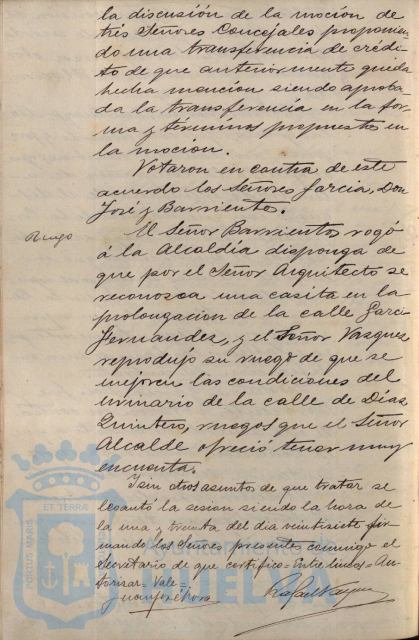 la discusión de la moción de
tres Señores Concejales proponien-
do una transferencia de crédi-
to de que anteriormente queda
hecha mención siendo aproba-
da la transferencia en la for-
ma y términos propuestos en
la moción.
Votaron en contra de este
acuerdo los Señores García, Don
José y Barrientos.
Ruego
El Señor Barrientos rogó
á la Alcaldía disponga de
que por el Señor Arquitecto se
reconosca una casita en la
prolongación de la calle Garci
Fernandez, y el Señor Vazquez
reprodujo su ruego de que se
mejoren las condiciones del
urinario de la calle de Dias
Quintero, ruegos que el Señor
Alcalde ofreció tener muy
en cuenta.
Y sin otros asuntos de que tratar se
levantó la sesion siendo la hora de
la una y treinta del dia veintisiete fir-
mando los Señores presentes conmigo el
Secretario de que certifico = Entre lineas = Au-
torizar = Vale =
Rafael Vazquez
PORTUS MARIS ET TERRAE
Ayuntamiento de
HUELVA